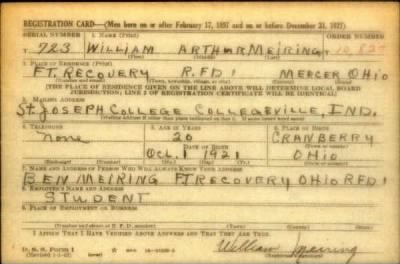 REGISTRATION CARD—(Men born on or after February 17, 1897 and on or before December 31, 1921)
SERIAL NUMBER 1. NAME (Print) ORDER NUMBER
T 723 WILLIAM ARTHUR MEIRING T 10,825
(First) (Middle) (Last)
2. PLACE OF RESIDENCE (Print)
FT. RECOVERY R.FD 1 MERCER OHIO
(Number and street) (Town, township, village, or city) (County) (State)
[THE PLACE OF RESIDENCE GIVEN ON THE LINE ABOVE WILL DETERMINE LOCAL BOARD
JURISDICTION; LINE 2 OF REGISTRATION CERTIFICATE WILL BE IDENTICAL]
3. MAILING ADDRESS
ST. JOSEPH COLLEGE COLLEGEVILLE, IND.
[Mailing address if other than place indicated on line 2. If same insert word same]
4. TELEPHONE 5. AGE IN YEARS 6. PLACE OF BIRTH
none 20 CRANBERRY
DATE OF BIRTH
OCT. 1 1921 OHIO
(Exchange) (Number) (Mo.) (Day) (Yr.) (State or country)
7. NAME AND ADDRESS OF PERSON WHO WILL ALWAYS KNOW YOUR ADDRESS
BEN MEIRING FT RECOVERY OHIO RFD 1
8. EMPLOYER'S NAME AND ADDRESS
STUDENT
9. PLACE OF EMPLOYMENT OR BUSINESS
(Number and street or R. F. D. number) (Town) (County) (State)
I AFFIRM THAT I HAVE VERIFIED ABOVE ANSWERS AND THAT THEY ARE TRUE.
D. S. S. Form 1
William Meiring